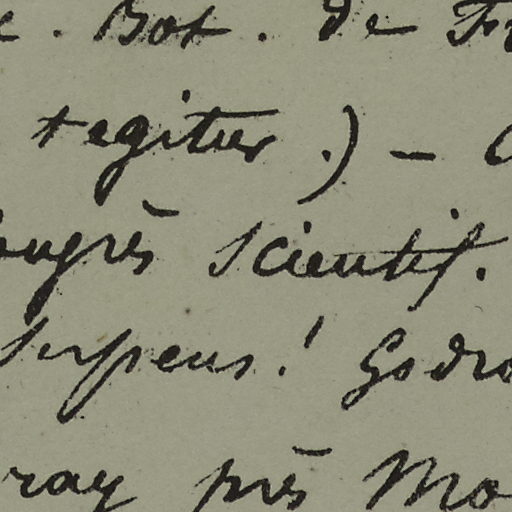 . Bot. de Fr
tegitur.) —
ongrès scientif.
serpens! Godro
ray près Mo